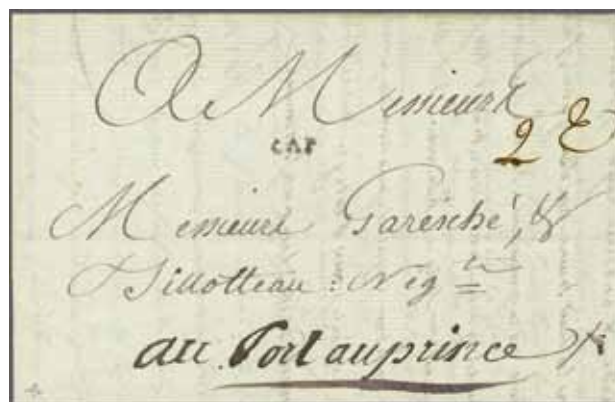 A Messieurs
CAP
2 E
Messieurs Garesché, &
Billotteau : Neg.ts
au Port auprince